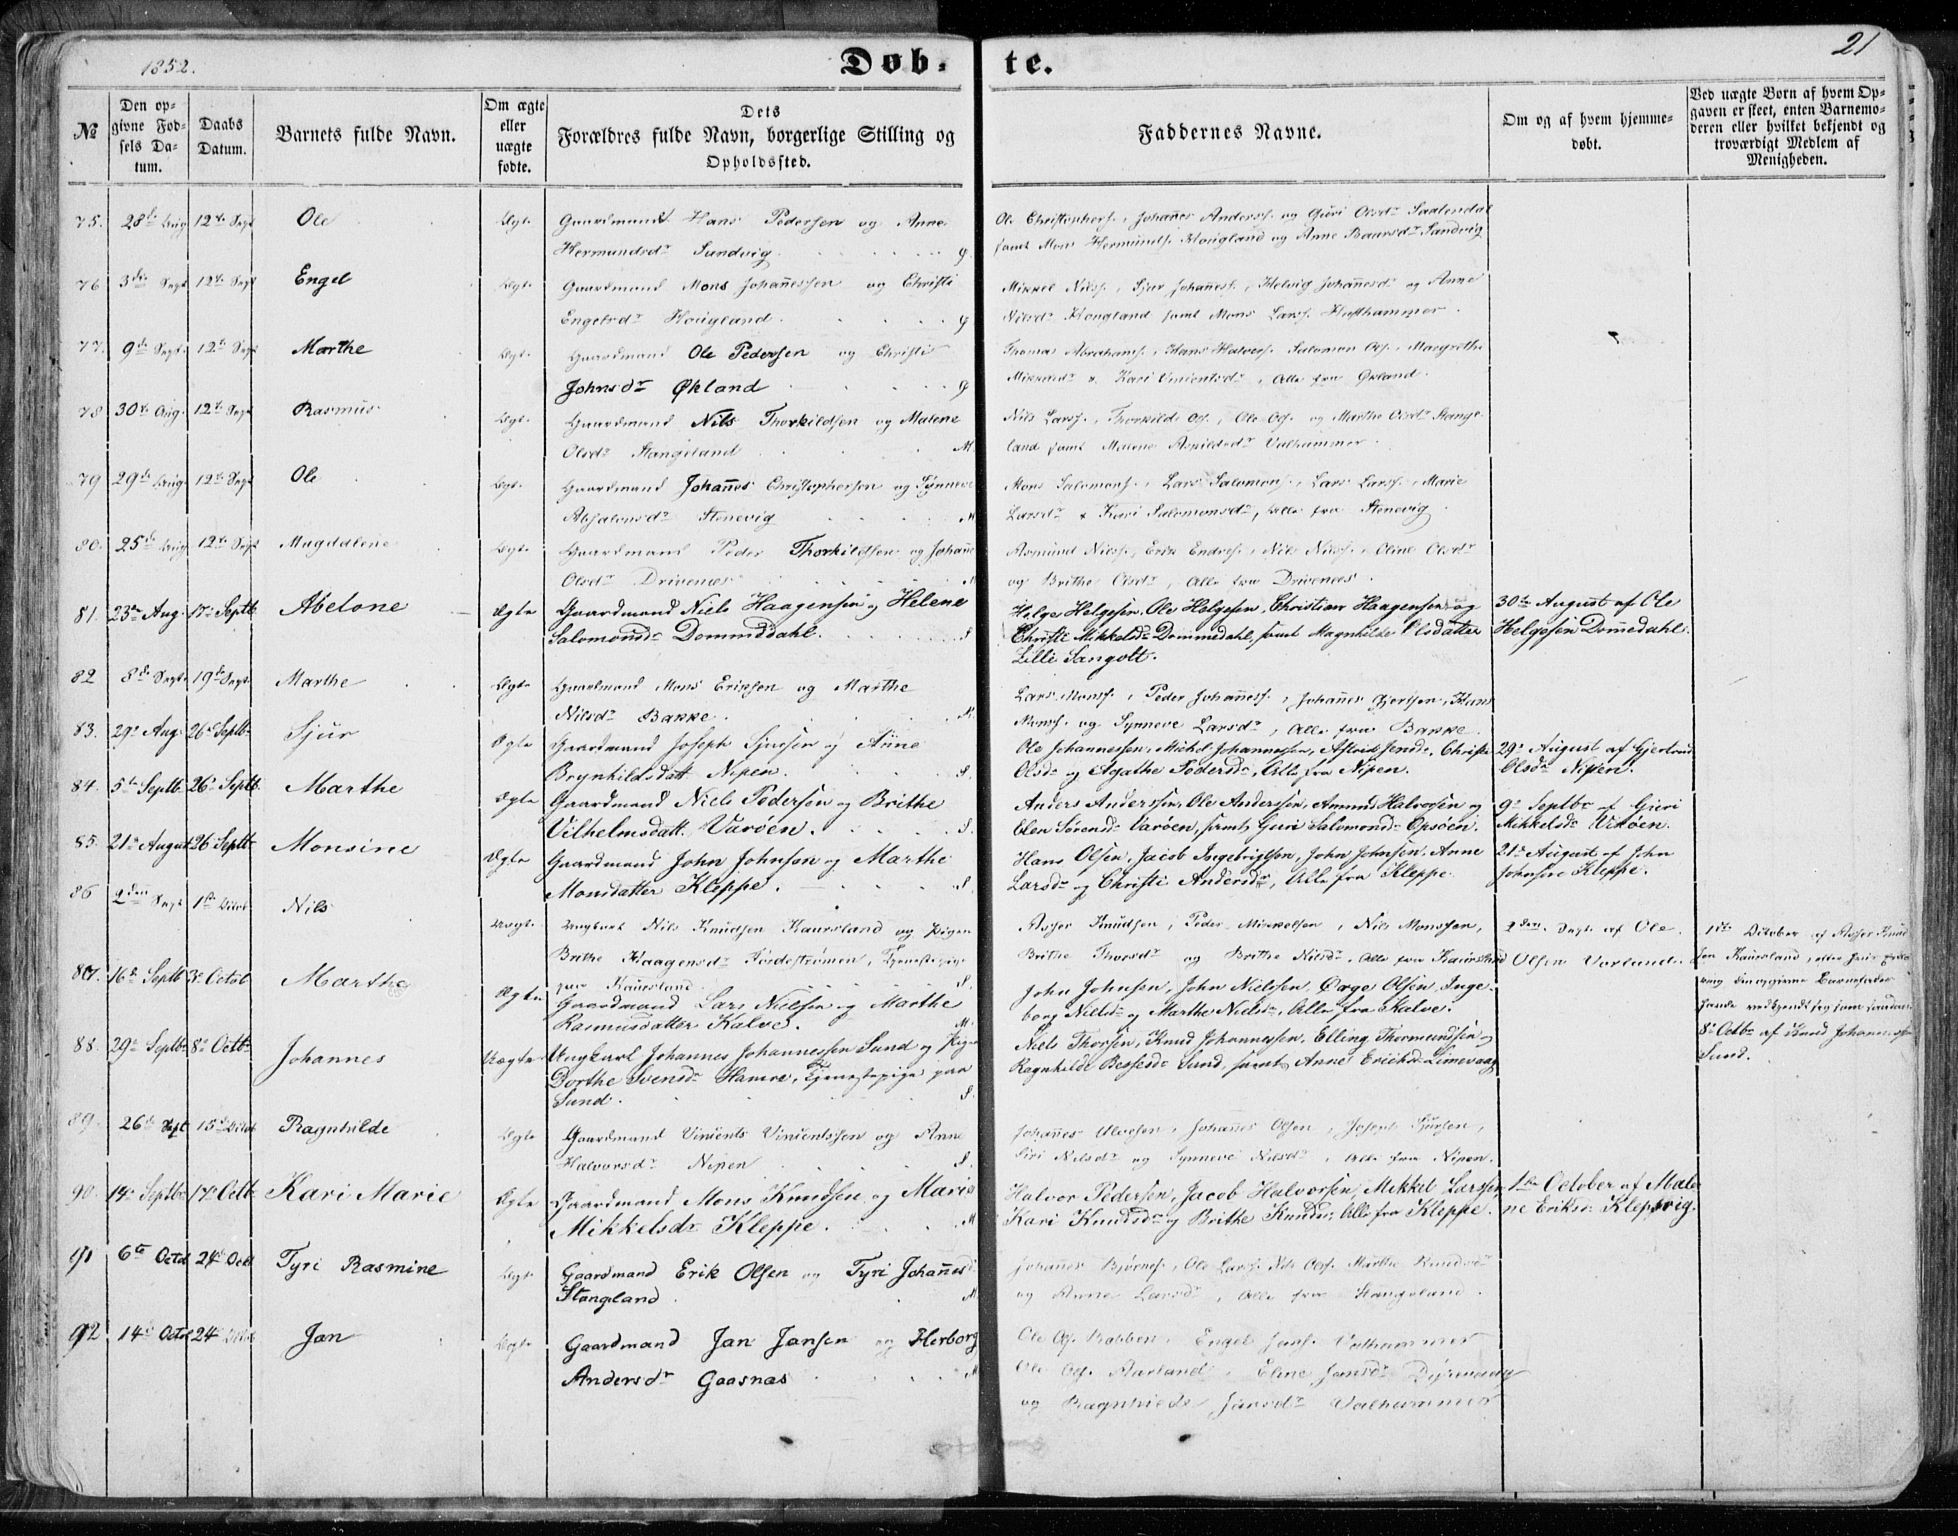 1852.
Døb-
te.
21
№
Den opgivne Fødsels Datum.
Daabs Datum.
Barnets fulde Navn.
Om ægte eller uægte fødte.
Dets Forældres fulde Navn, borgerlige Stilling og Opholdssted.
Faddernes Navne.
Om og af hvem hjemmedøbt.
Ved uægte Børn af hvem Opgaven er skeet, enten Barnemoderen eller hvilket bekjendt og troværdigt Medlem af Menigheden.
75. 28de Aug 12te Sept Ole Ægte Gaardmand Hans Pedersen og Anne
Hermundsdr Sundvig G.
Ole Christophers., Johañes Anderss. og Guri Olsdr Saalendal
samt Mons Hermunds. Hougland og Anne Baarsdr Sandvig
76 3die Sept 12te Sept Engel Ægte Gaardmand Mons Johañessen og Christi
Engelsdr Hougland. G
Mikkel Nils., Sjur Johañess., Helvig Johañesd og Anne
Nilsdr Hougland samt Mons Larss. Husthammer.
77. 9de Sept. 12te Sept Marthe Ægt. Gaardmand Ole Pedersen og Christi
Johnsdr Økland G
Thomas Abrahams., Hans Halvors. Salomon Ols., Margrethe
Mikkelsdr & Kari Vincentsdr, Alle fra Økland.
78 30te Aug. 12te Sept Rasmus Ægt. Gaardmand Nils Thorkildsen og Malene
Olsdr Stangeland M.
Nils Larss., Thorkild Ols., Ole Ols. og Marthe Olsdr Stange-
land samt Malene Askildsdr Valhammer.
79 29de Aug. 12te Sept Ole Ægt. Gaardmand Johañes Christophersen og Synneve
Absalonsdr Stenevig M
Mons Salomons., Lars Salomons., Lars Larss., Marie
Larsdr & Kari Salomonsdr, Alle fra Stenevig.
80. 25de Aug 12te Sept Magdalene Ægt. Gaardmand Peder Thorkildsen og Johañe
Olsdr Drivenes
Asmund Nilss., Erik Endres., Nils Nilss., Oline Olsdr
og Brithe Olsdr, Alle fra Drivenes.
81. 23de Aug. 17de Septb Abelone Ægte Gaardmand Niels Haagensen og Helene
Salomonsdr Dommedahl. S
Helge Helgesen, Ole Helgesen, Christian Haagensen og
Christi Mikkelsdr Dommedahl, samt Magnhilde Olsdatter
Lille Sangolt.
30te August af Ole
Helgesen Dom̃edahl.
82 8de Sept 19de Sept Marthe Ægt Gaardmand Mons Eriksen og Marthe
Nilsdr Bakke.
Lars Monss., Peder Johañess., Johañes Gjertsen, Hans
Monss. og Synneve Larsdr, Alle fra Bakke.
83. 29de Aug. 26de Septb Sjur Ægte Gaardmand Joseph Sjursen og Añne
Brynhildsdatt Nipen. S.
Ole Johannessen, Michel Johannessen, Christi
Olsdr og Agathe Pedersdr, Alle fra Nipen.
29de August af Gjertrud
Olsdr Nipen.
84. 5te Septb. 26de Septb. Marthe Ægte Gaardmand Niels Pedersen og Brithe
Vilhelmsdatt. Varøen. S.
Anders Anderssen, Ole Anderssen, Amund Halvorsen og
Elen Sørensdr Varøen, samt Guri Salomonsdr Opsøen.
9de Septbr af Guri
Mikkelsdr Varøen.
85. 21de August 26 Septb Monsine Ægte Gaardmand John Johnsen og Marthe
Monsdatter Kleppe. S.
Hans Olsen, Jacob Ingebrigtsen, John Johnsen, Anne
Larsdr og Christi Andersdr, Alle fra Kleppe.
21de August af John
Johnsen Kleppe.
86 2den Sept 1ste Octob Nils Uægt. Ungkarl Nils Knudsen Kaursland og Pigen
Brithe Haagensdr Førdestrømen, Tjenestepige
paa Kaursland. S.
Asser Knudsen, Peder Mikkelsen, Nils Monssen,
Brithe Thorsdr og Brithe Nilsdr. Alle fra Kaursland
2den Sept. af Ole
Olsen Vorland.
1ste October af Asser Knud
sen Kaursland, efter
opgivne Barnefader
havde vedkjendt sig som saadan.
87. 16de Septb 3de Octob Marthe Ægte Gaardmand Lars Nielsen og Marthe
Rasmusdatter Kalve. M.
John Johnsen, John Nielsen, Ørge Olsen, Inge-
borg Nielsdr og Marthe Nielsdr, Alle fra Kalve.
88. 29de Septbr 8de Octbr Johannes Uægte Ungkarl Johannes Johannessen Sund og Pigen
Dorthe Svensdr Hamre, Tjenestepige paa
Sund. S.
Niels Thorsen, Knud Johannessen, Elling Thormundsen og
Ragnhilde Bessesdr Sund, samt Anne Eriksdr Limevaag
8de Octbr af Knud Johannessen
Sund.
89. 26de Sept 15de Octob Ragnhilde Ægte Gaardmand Vincents Vincentssen og Anne
Halvorsdr Nipen S.
Johañes Ulvesen, Johañes Olsen, Joseph Sjursen,
Siri Nilsdr og Synneve Nilsdr, Alle fra Nipen.
90. 14de Septbr 17de Octb Kari Marie Ægte Gaardmand Mons Knudsen og Marie
Mikkelsdr Kleppe. M
Halvor Pedersen, Jacob Halvorsen, Mikkel Larssen
Kari Knudsdr og Brithe Knudsdr, Alle fra Kleppe.
1ste October af Male-
ne Eriksdr Kleppevig.
91 6te Octob 24de Octb Tyri Rasmine Ægt. Gaardmand Erik Olsen og Tyri Johañesd
Stangeland M.
Johañes Bjørnes., Ole Larss. Nils Ols. Marthe Knudsdr
og Anne Larsdr, Alle fra Stangeland.
92 14de Octob 24de Octob Jan Ægte Gaardmand Jan Jansen og Herborg
Andersdr Gaasnas M
Ole Ols. Rabben, Engel Jans. Valhammer
Ole Ols. Aarland, Eline Jansdr Dyrevaag
og Ragnhilde Jansdr Valhammer